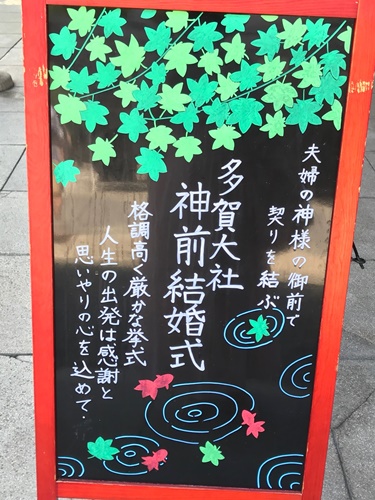 夫婦の神様の御前で
契りを結ぶ
多賀大社
神前結婚式
格調高く厳かな挙式
人生の出発は感謝と
思いやりの心を込めて